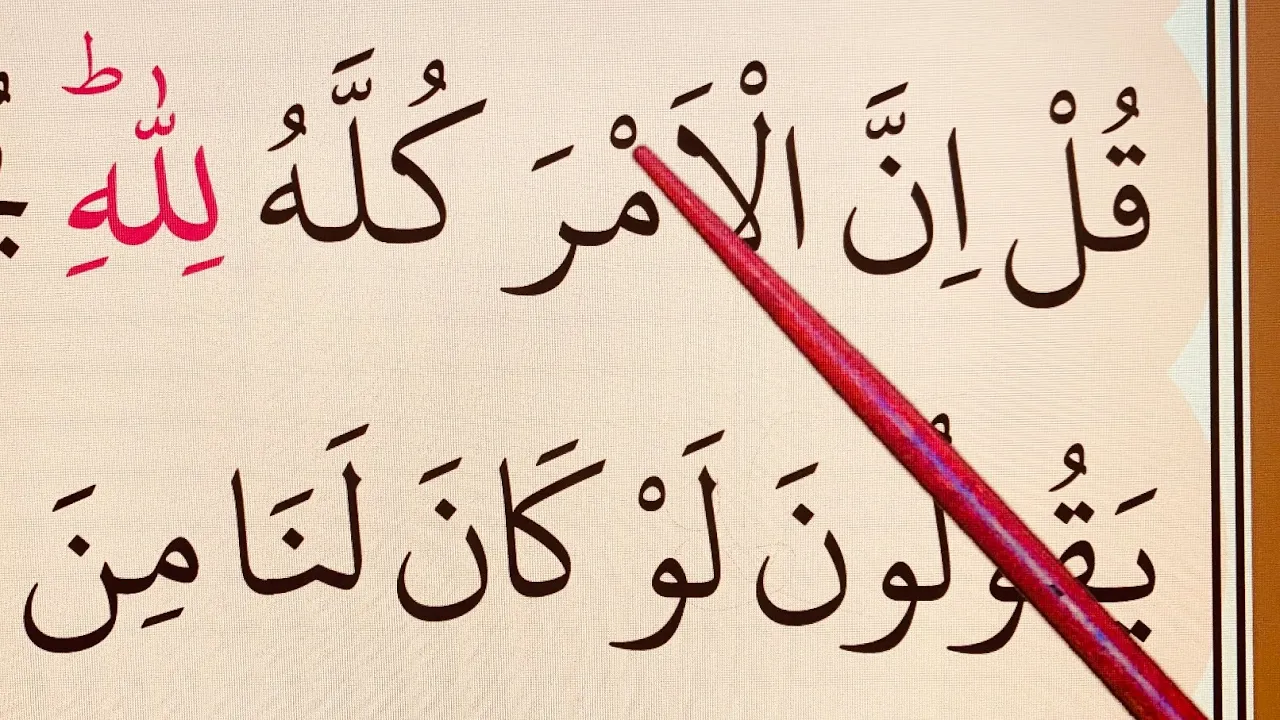 قُلْ اِنَّ الْاَمْرَ كُلَّهٗ لِلّٰهِ ؕ
يَقُولُونَ لَوْ كَانَ لَنَا مِنَ